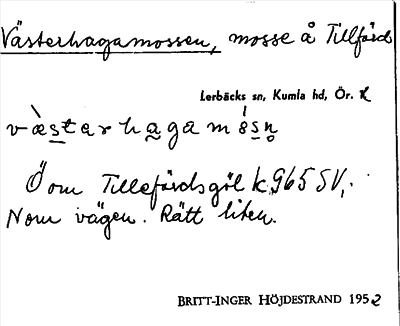 Västerhagamossen, mosse å Tillförd
Lerbäcks sn, Kumla hd, Ör. l
væstarhagamósn̥
Ö om Tillefördsgöl k 965 SV,.
N om vägen. Rätt liten.
BRITT-INGER HÖJDESTRAND 1952